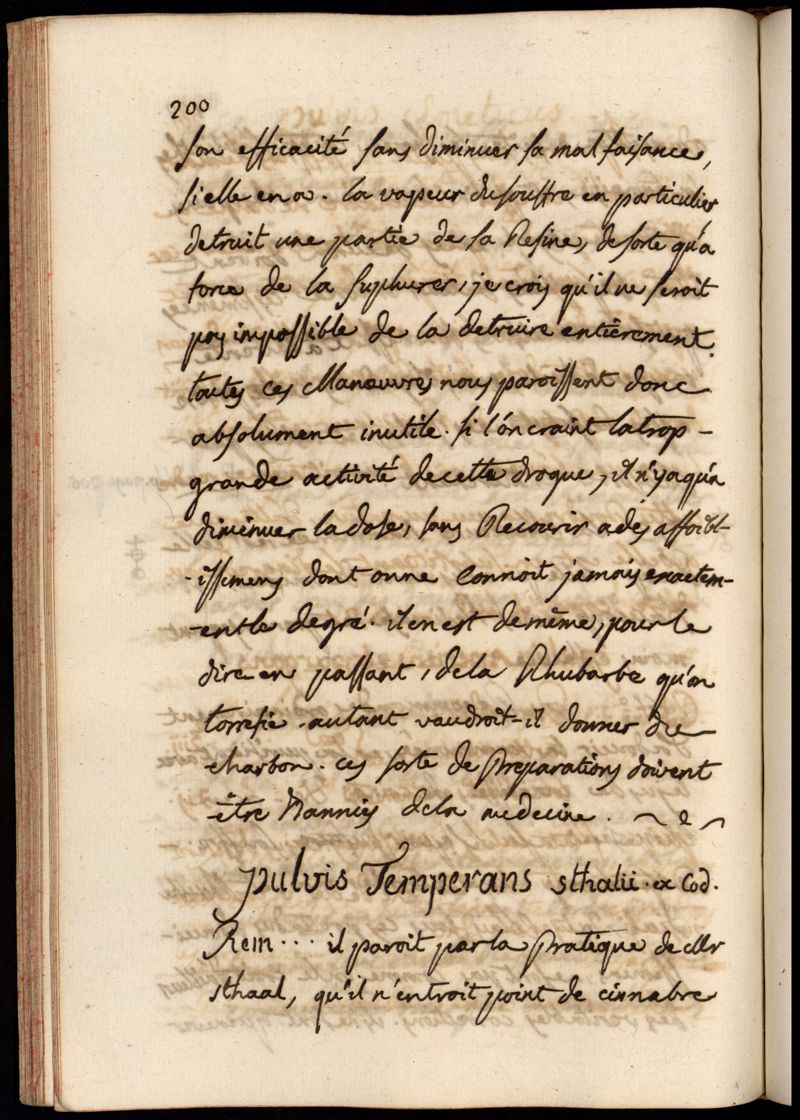 200
son efficacité sans diminuer sa mal faisance,
si elle en a. la vapeur du souffre en particulier
detruit une partie de sa Resine, de sorte qu'a
force de la suphurer, je crois qu'il ne seroit
pas impossible de la detruire entièrement.
toutes ces Manœuvres nous paroissent donc
absolument inutile. si l'on craint la trop-
grande activité de cette drogue, il n'y a qu'a
diminuer la dose, sans Recourir a des affoibl-
-issemens dont on ne connoit jamais exactem-
-ent le degré. il en est de même, pour le
dire en passant, de la Rhubarbe qu'on
torrefie. autant vaudroit-il donner du
charbon. ces sorte de preparations doivent
être Bannies de la medecine.
pulvis Temperans sthalii. ex Cod.
Rem... il paroit par la pratique de Mr
sthaal, qu'il n'entroit point de cinnabre